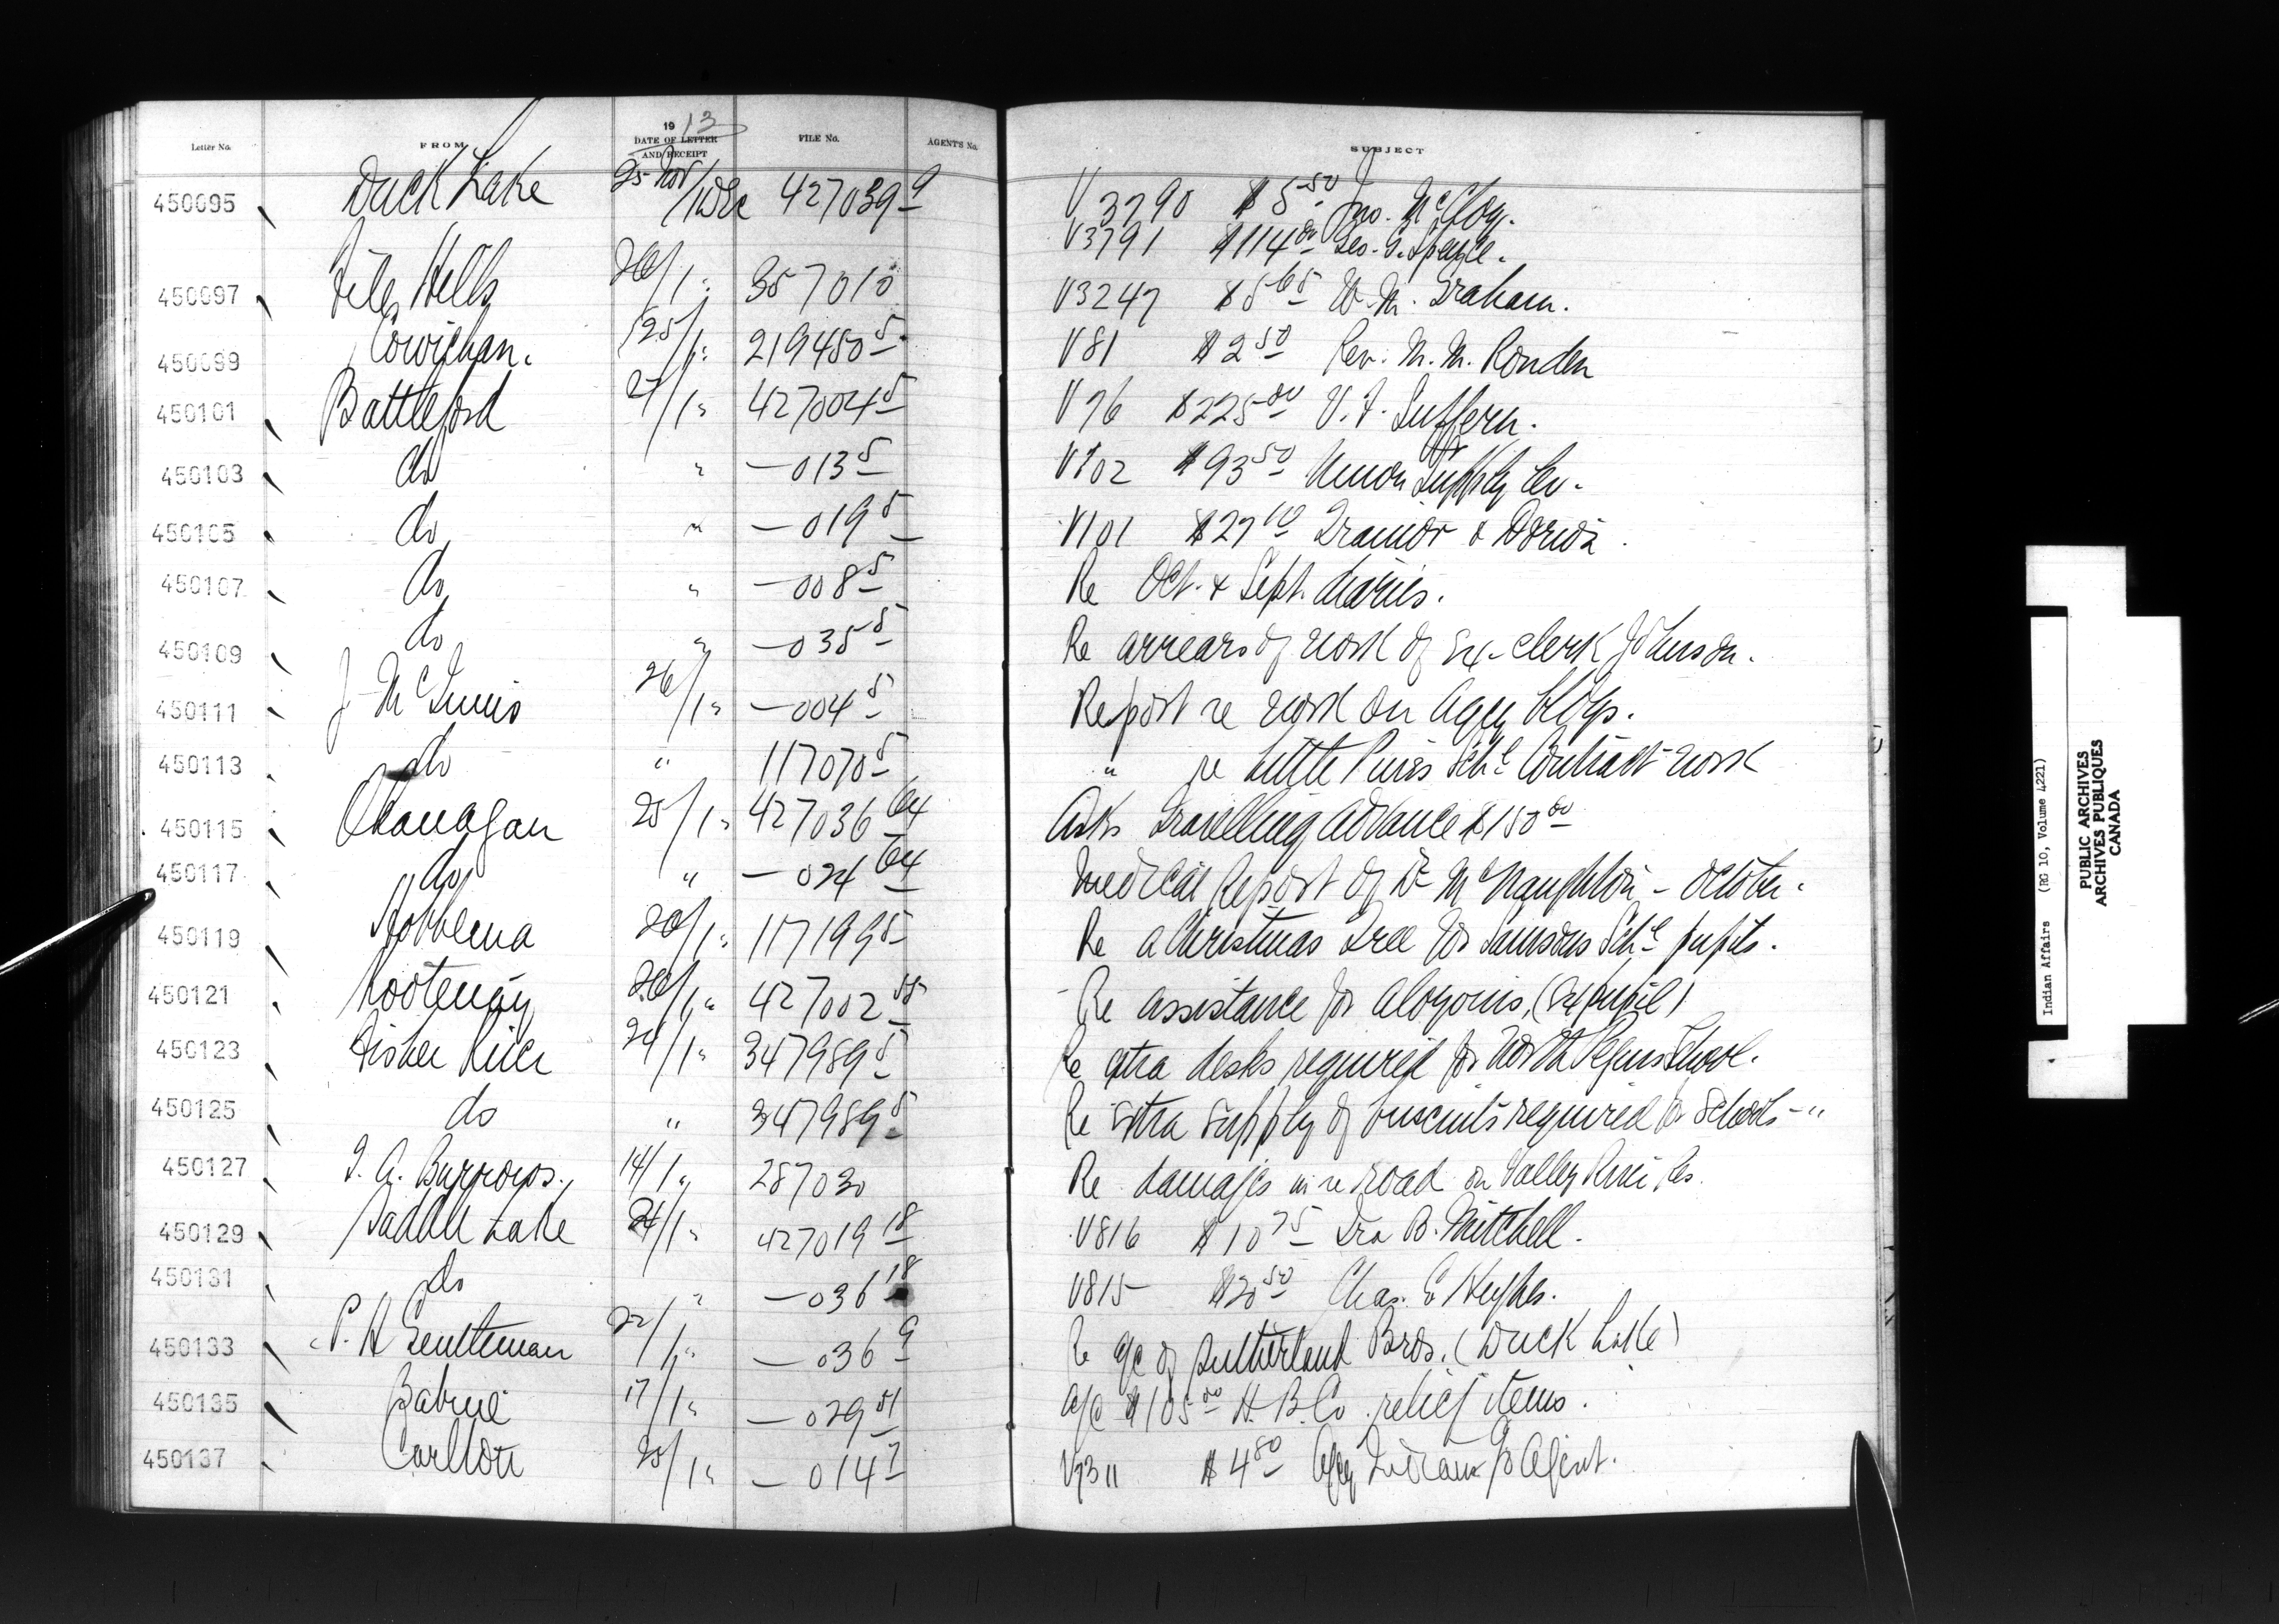 Letter No. FROM 1913 DATE OF LETTER AND RECEIPT FILE No. AGENT'S No. SUBJECT
450095 Duck Lake 25 Nov/1 Dec 427039 9 V 3790 $5.50 Jno. McCloy.
V3791 $114.00 Geo. G.
450097 File Hills 26/1 " 357010 V3247 $5.65 W. M. Graham.
450099 Cowichan. 25/1 " 219450 5 V81 $2.50 Rev. M. M. Ronden
450101 Battleford 27/1 " 427004 5 V76 $225.00 V. F. Suffern.
450103 do " —013 5 V102 $93.50 Union Supply Co.
450105 do " —019 5 V101 $27.10 Trainor &
450107 do " —008 5 Re Oct. & Sept. diaries.
450109 do " —035 5 Re arrears of work of Ex-clerk Johnson.
450111 J McInnis 26/1 " —004 5 Report re work on Agcy bldgs.
450113 do " 117070 5 " re Little Pines Schl Contract work
450115 Okanagan 25/1 " 427036 64 Asks travelling advance $150.00
450117 do " —024 64 Medical Report of Dr McNaughton - October.
450119 Hobbema 26/1 " 117199 5 Re a Christmas Tree for Samsons Schl pupils.
450121 Kootenay 26/1 " 427002 55 Re assistance for Aloysius, (Ex pupil)
450123 Fisher River 24/1 " 347989 5 Re extra desks required for North Peguis School.
450125 do " 347989 5 Re extra supply of biscuits required for schools - "
450127 T. A. Burrows. 14/1 " 287030 Re damages in re road on Valley River Res.
450129 Saddle Lake 24/1 " 427019 18 V816 $10.75 Ira B. Mitchell.
450131 do " —036 18 V815 Chas. E Hughes.
450133 P. H Gentleman 22/1 " —036 9 Re a/c of Sutherland Bros. (Duck Lake)
450135 Babine 17/1 " —029 51 a/c $105.00 H. B. Co relief items.
450137 Carlton 25/1 " —014 7 V7311 $4.80 Agcy Indians p Agent.
Indian Affairs (RG 10, Volume 4221)
PUBLIC ARCHIVES
ARCHIVES PUBLIQUES
CANADA